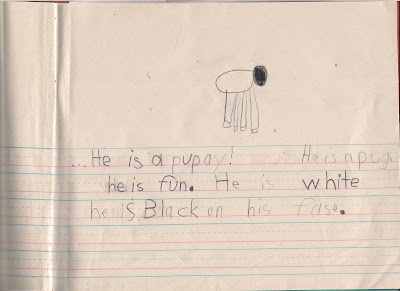 ...He is a pupay! He is a pug.
he is fun. He is white
he is Black on his fase.